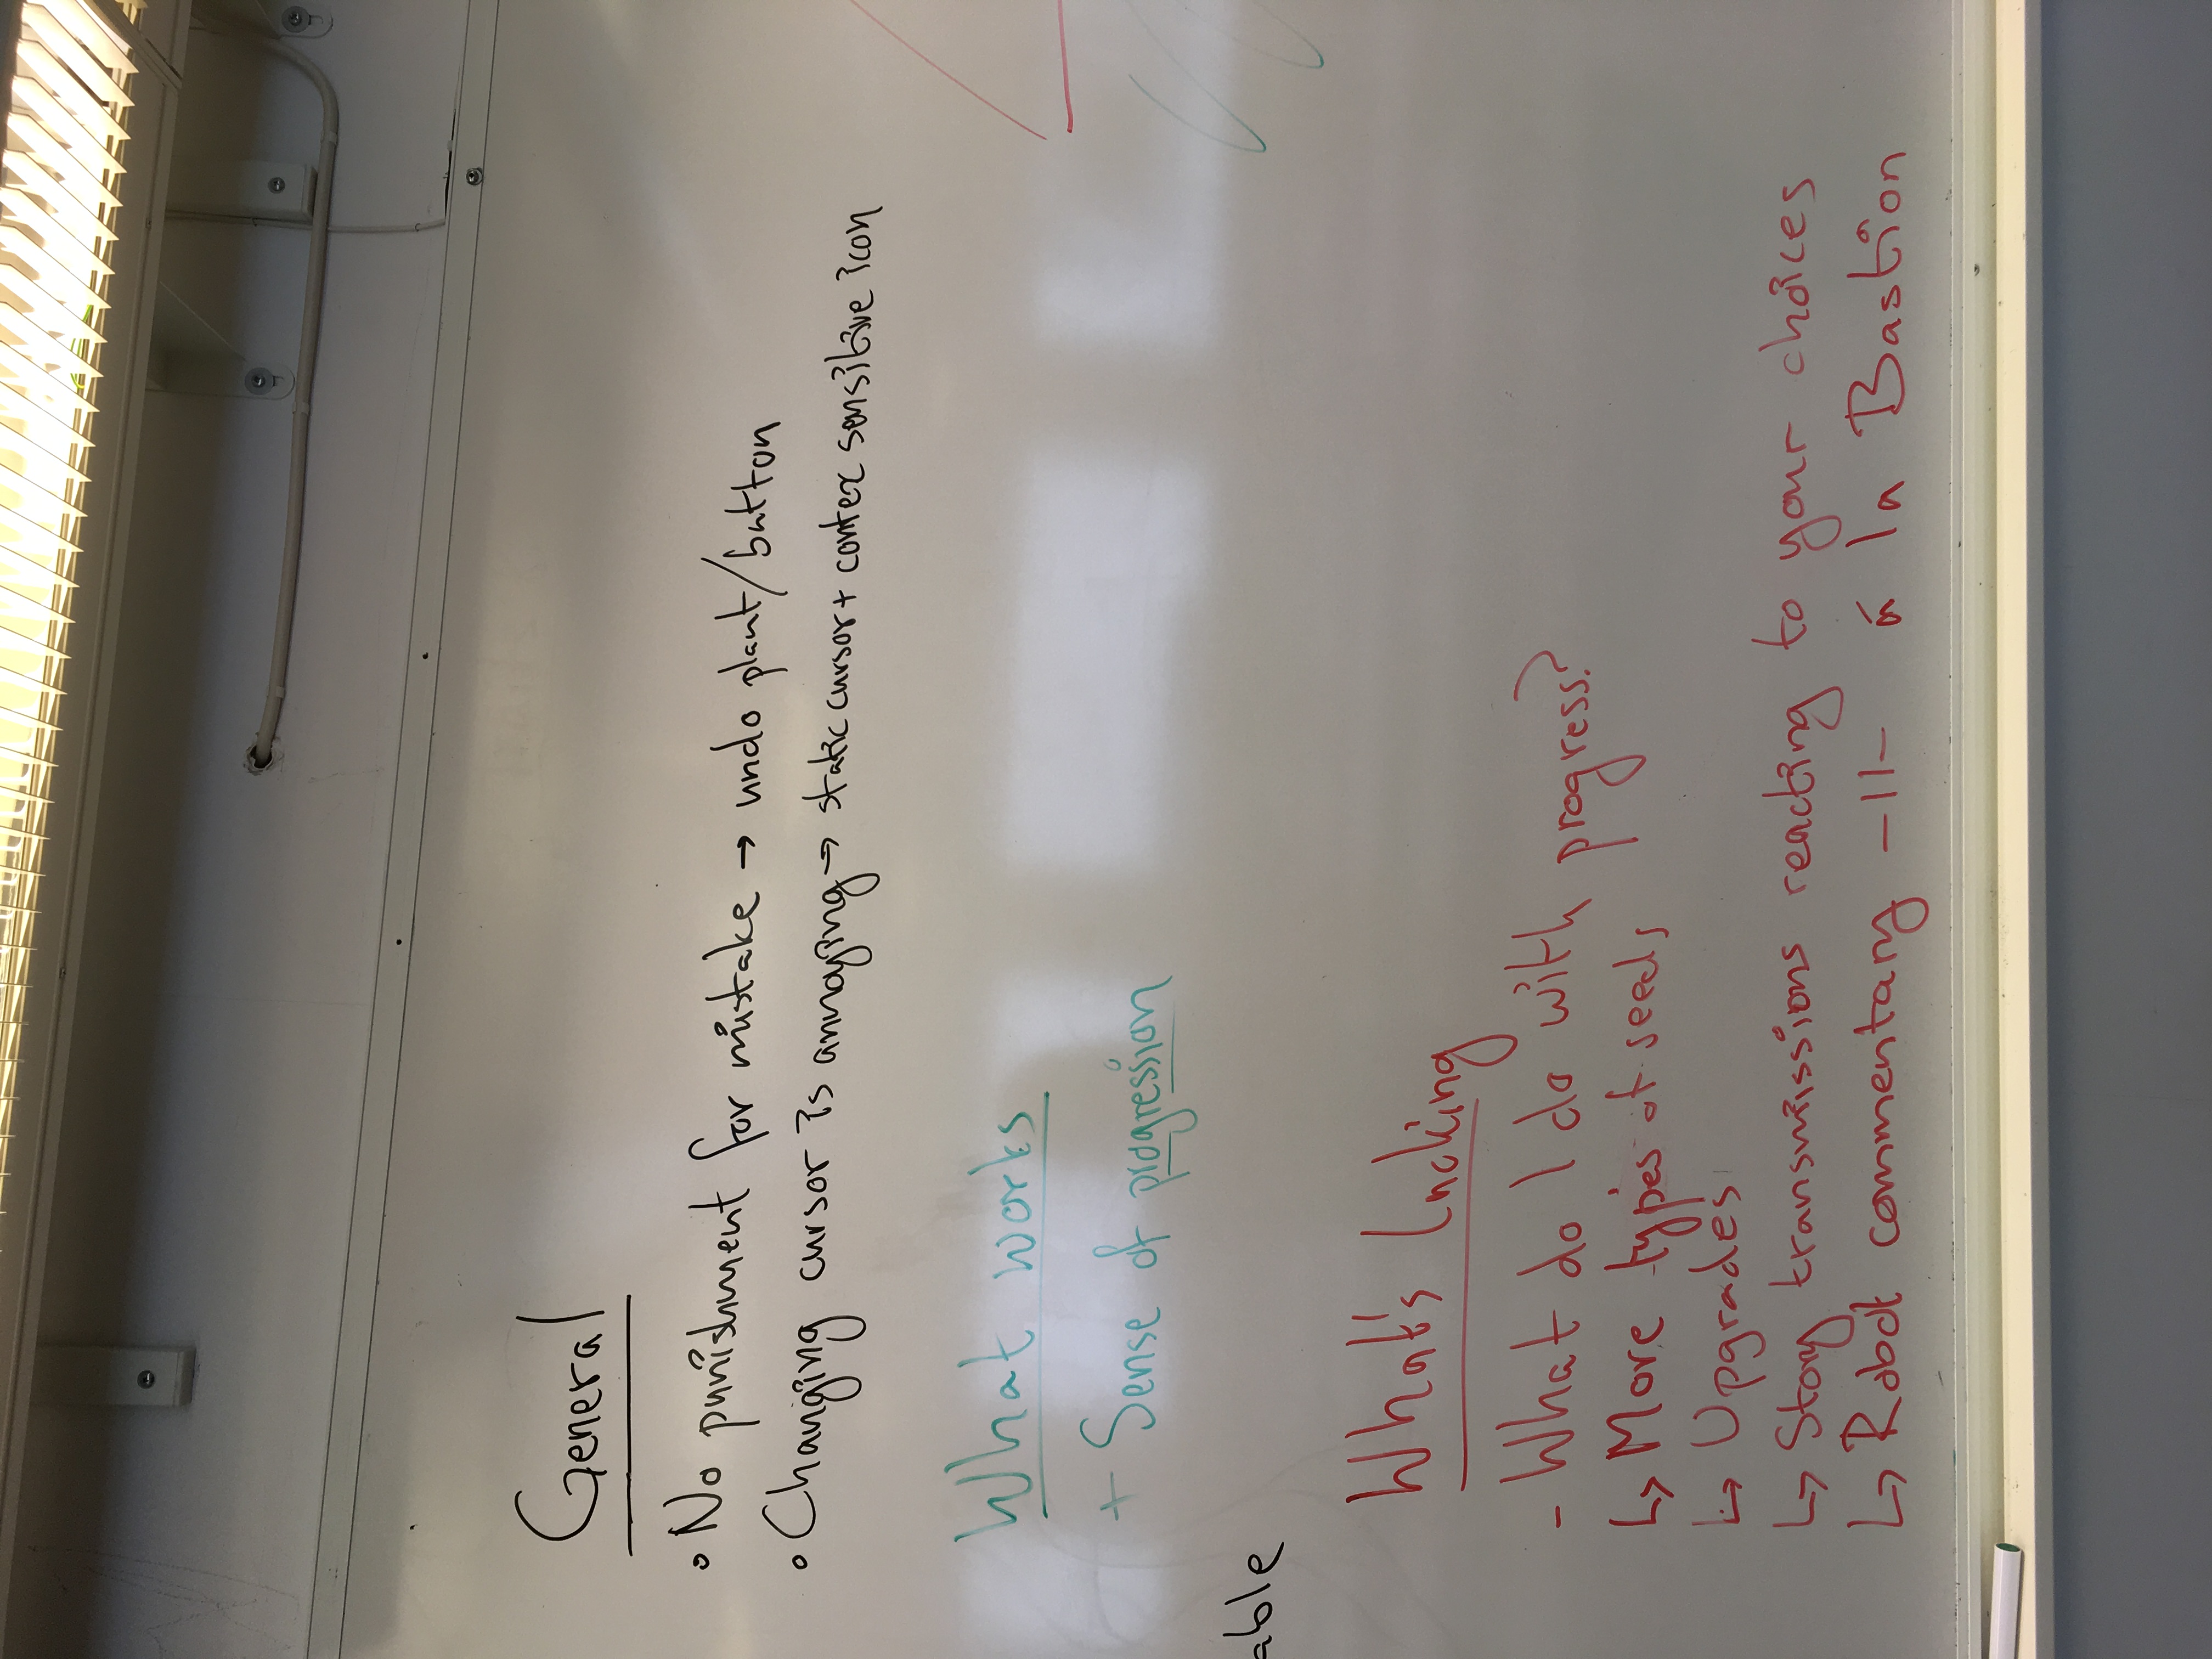 General
• No punishment for mistake → undo plant/button
• Changing cursor is annoying → static cursor + contex sensitive icon
What works
+ Sense of progression
able
What's lacking
- What do I do with progress?
↳ More types of seeds
↳ Upgrades
↳ Story transmissions reacting to your choices
↳ Robot commentary -11- á la Bastion